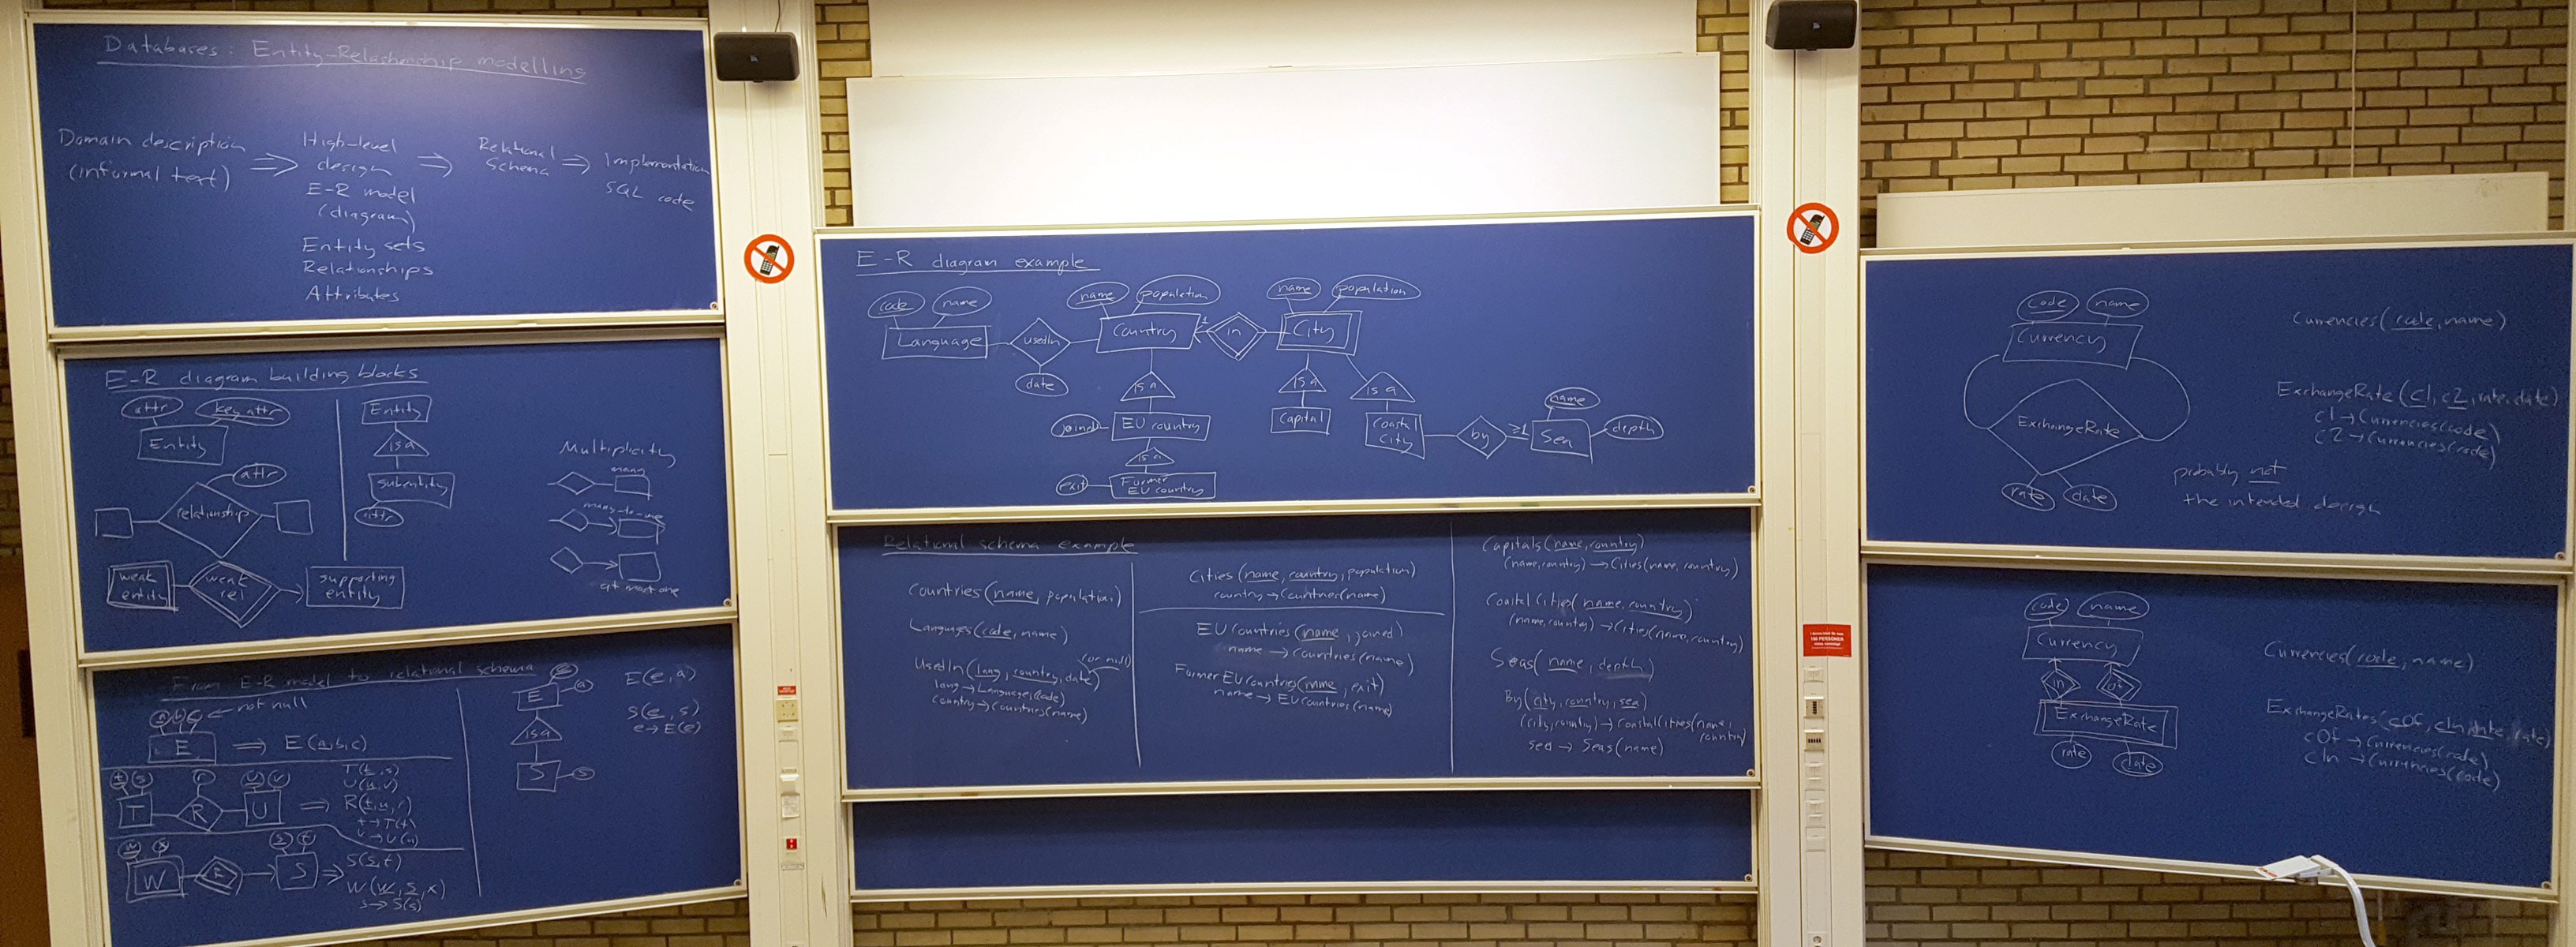 Databases: Entity-Relationship modelling
Domain description
(informal text)
⇒
High-level
design
E-R model
(diagram)
Entity sets
Relationships
Attributes
⇒
Relational
Schema
⇒
Implementation
SQL code
E-R diagram building blocks
attr
key attr
Entity
attr
relationship
weak entity
weak rel
supporting entity
Entity
is a
subentity
attr
Multiplicity
many
many-to-one
at most one
From E-R model to relational schema
a b c ← not null
E ⇒ E(a,b,c)
t s r u v
T R U ⇒
T(t,s)
U(u,v)
R(t,u,r)
t → T(t)
u → U(u)
w x s t
W S ⇒
S(s,t)
W(w,s,x)
s → S(s)
e
E a
is a
S s
E(e,a)
S(e,s)
e → E(e)
E-R diagram example
code name name population name population
Language usedIn Country 1 in City
date
is a is a is a
joined EU country Capital Coastal City by ≥1 Sea
name
depth
is a
exit Former EU country
Relational schema example
Countries(name, population)
Languages(code, name)
(or null)
UsedIn(lang, country, date)
lang → Languages(code)
country → Countries(name)
Cities(name, country, population)
country → Countries(name)
EUCountries(name, joined)
name → Countries(name)
FormerEUCountries(name, exit)
name → EUCountries(name)
Capitals(name, country)
(name,country) → Cities(name, country)
CoastalCities(name, country)
(name,country) → Cities(name, country)
Seas(name, depth)
By(city, country, sea)
(city,country) → CoastalCities(name, country)
sea → Seas(name)
code name
Currency
ExchangeRate
rate date
Currencies(code, name)
ExchangeRate(c1, c2, rate, date)
c1 → Currencies(code)
c2 → Currencies(code)
probably not
the intended design
code name
Currency
in of
ExchangeRate
rate date
Currencies(code, name)
ExchangeRates(cOf, cIn, date, rate)
cOf → Currencies(code)
cIn → Currencies(code)
150 PERSONER